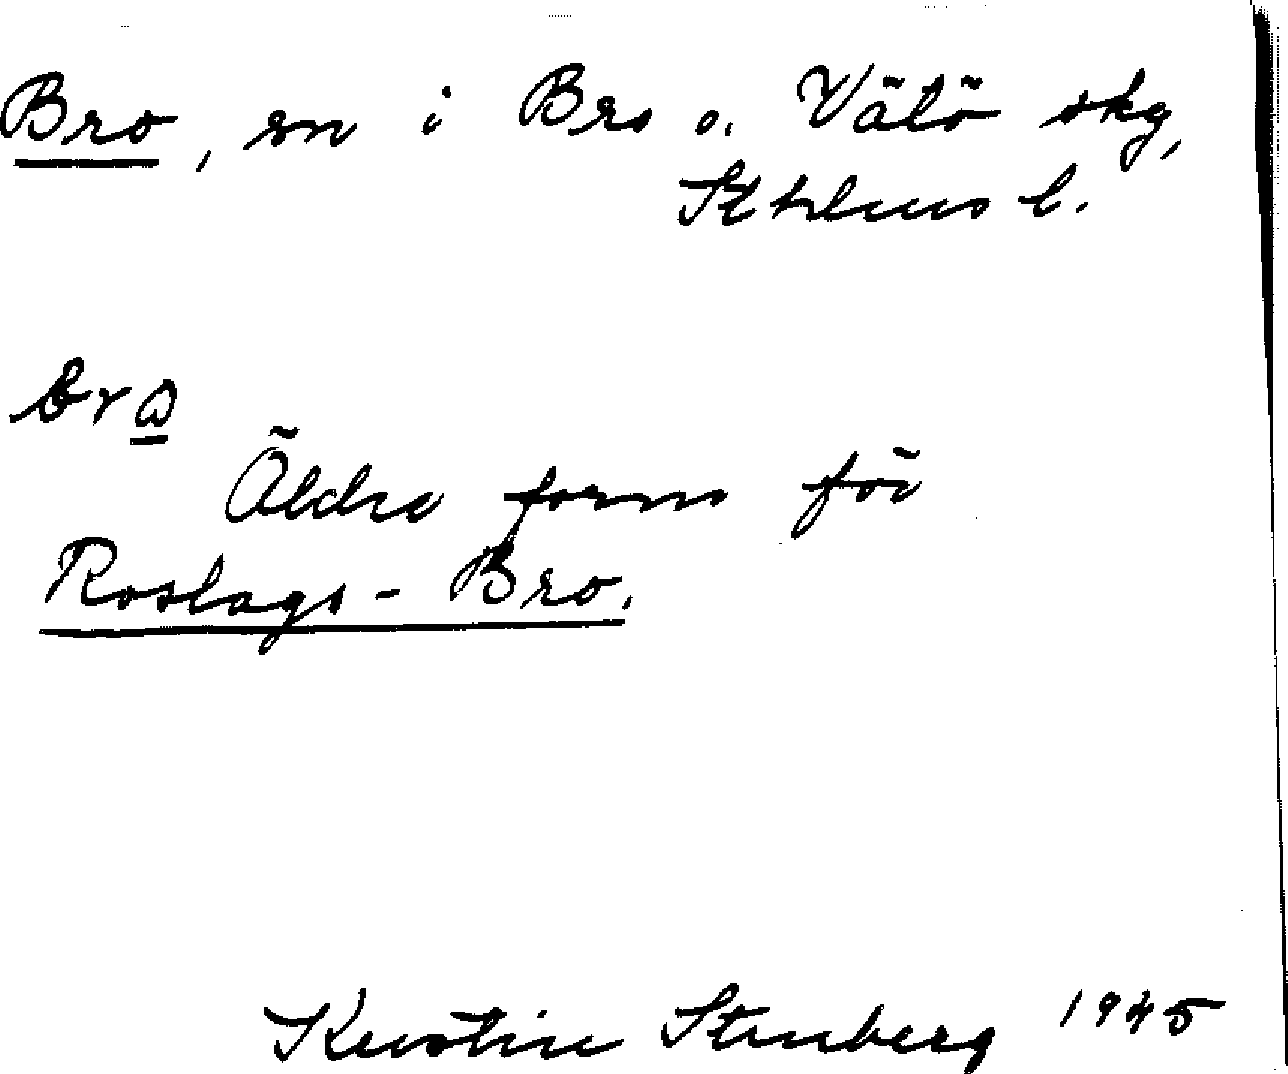 Bro, sn i Bro o. Vätö skg,
Sthlms l.
bro
Äldre form för
Roslags-Bro.
Kerstin Stenberg 1945